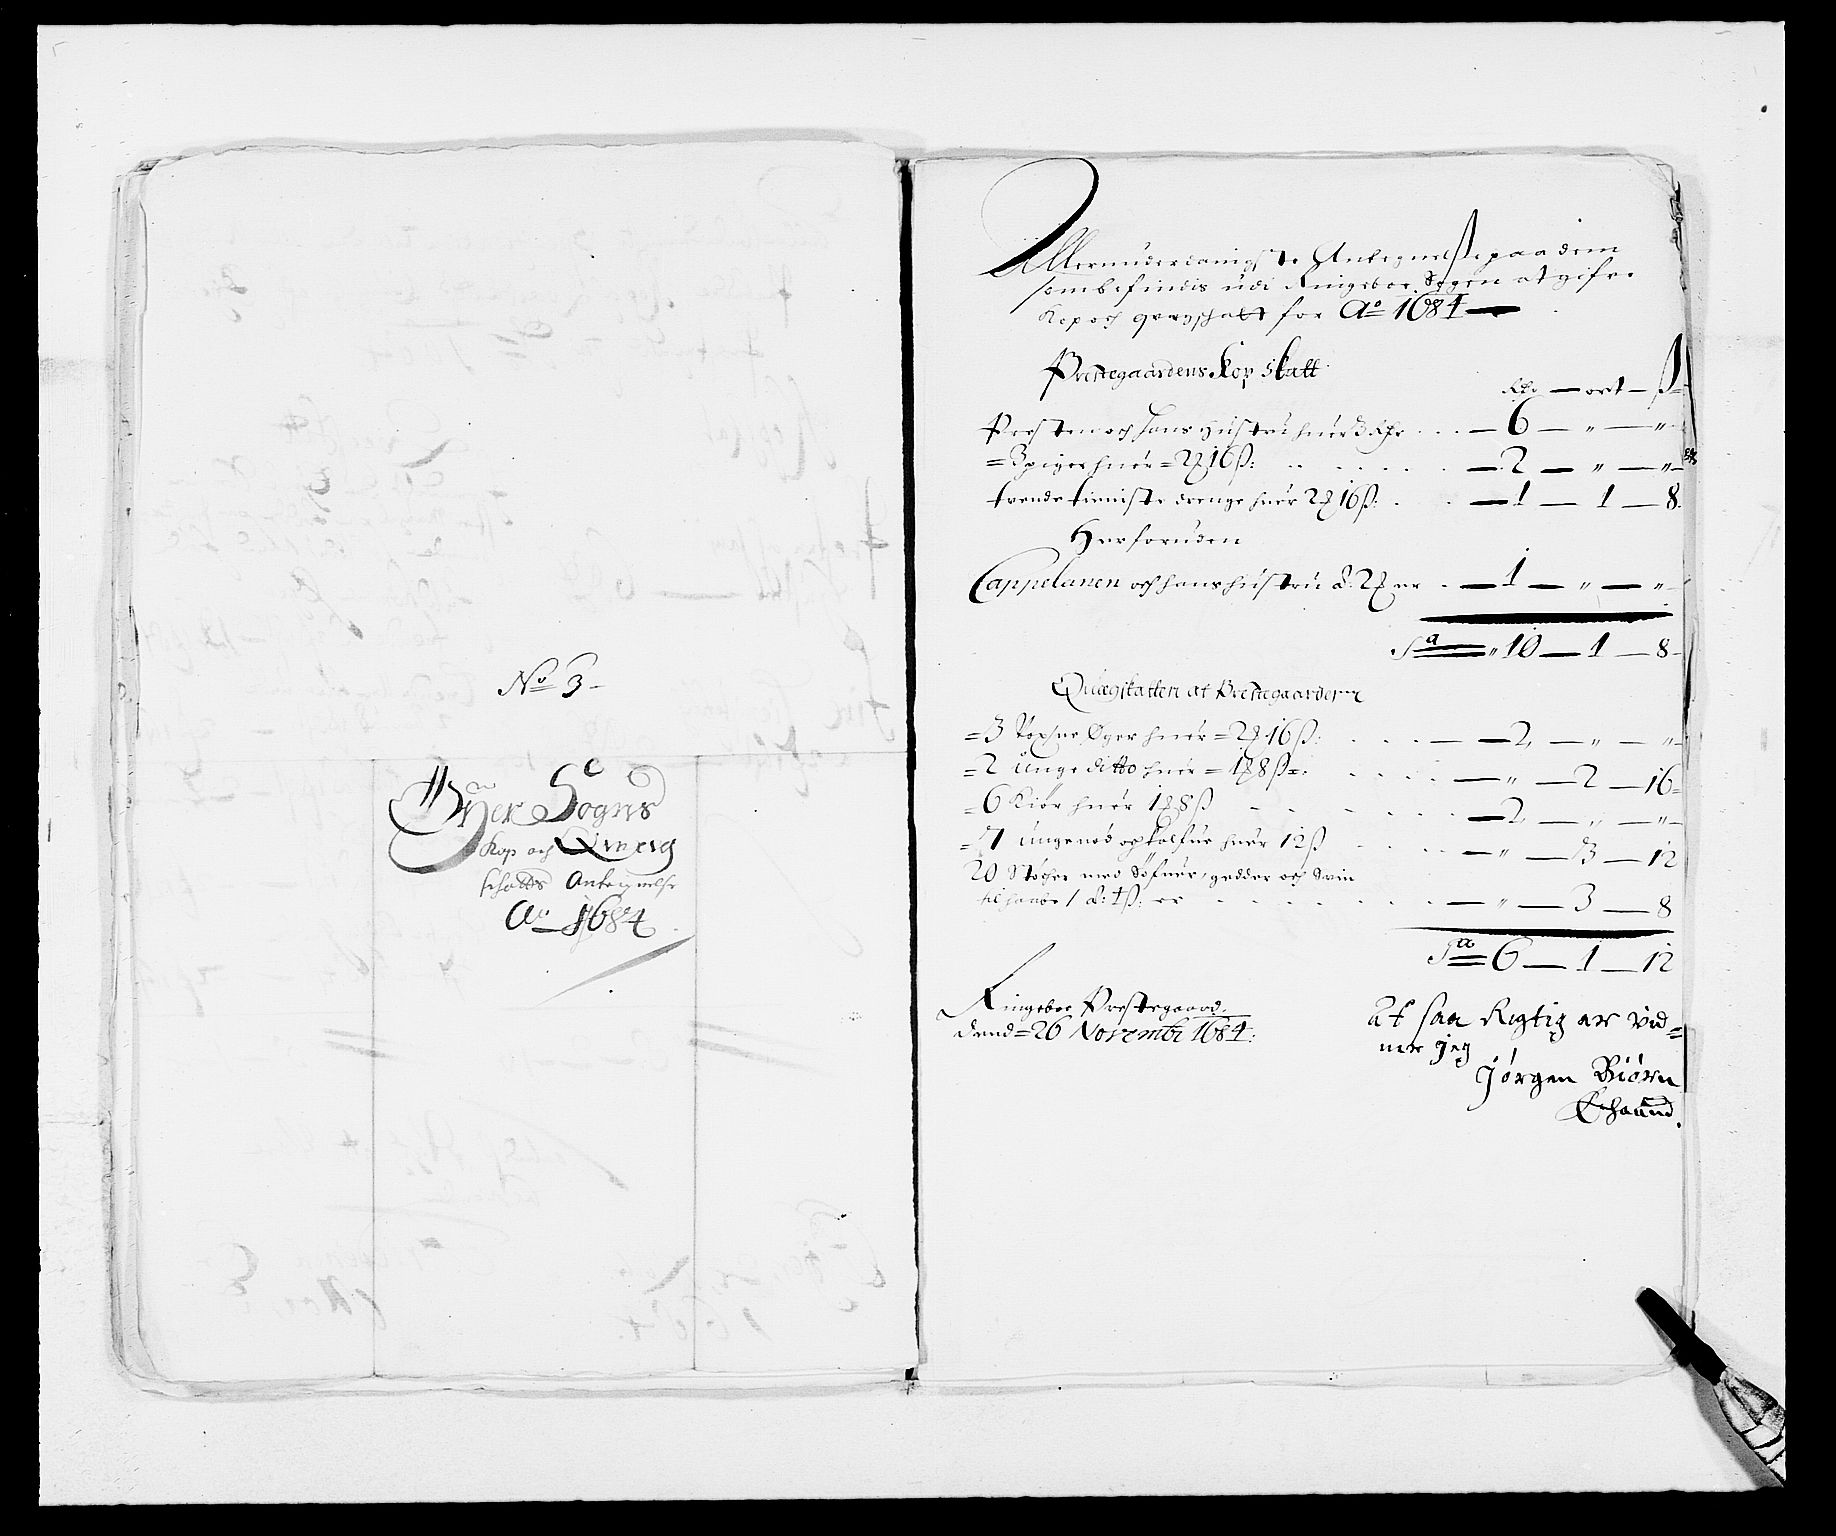 No 3
Øyer Sogns
Kop och Qvæg
schatts Antegnelse
Ao 1684
Allerunderdanigste Antegnelße paa dem
som befindis udi Ringeboe Sogen at gifve
Kop och qvegschatt for Ao 1684
Prestegaardens Kop skatt
Rdr — ort — ß
Presten och hans hustru huer 3 Rdr — 6 — " — "
= 3 piger huer = 2 ort 16 ß: — 2 — " — "
trende tieniste drenge huer 2 ort 16 ß: — 1 — 1 — 8
Herforuden
Cappelanen och hans hustru a. 2 ort er — 1 — " — "
Sa " 10 — 1 — 8
Quægskatten af Prestegaarden
= 3 Voxne Øger huer = 2 ort 16 ß: — 2 — " — "
= 2 unge ditto huer = 1 ort 8 ß = — " — 2 — 16
= 6 Kiør huer 1 ort 8 ß — 2 — " — "
= 7 ungenød og kalfue huer 12 ß — " — 3 — 12
20 Støcher med Søfuer, gedder och Svin
til haabe / a: 4 ß: er — " — 3 — 8
Sa = 6 — 1 — 12
Ringeboe Prestegaard.
dend = 26 Novembr 1684:
at saa Rigtig er vid=
ner jeg
Jørgen Biørn